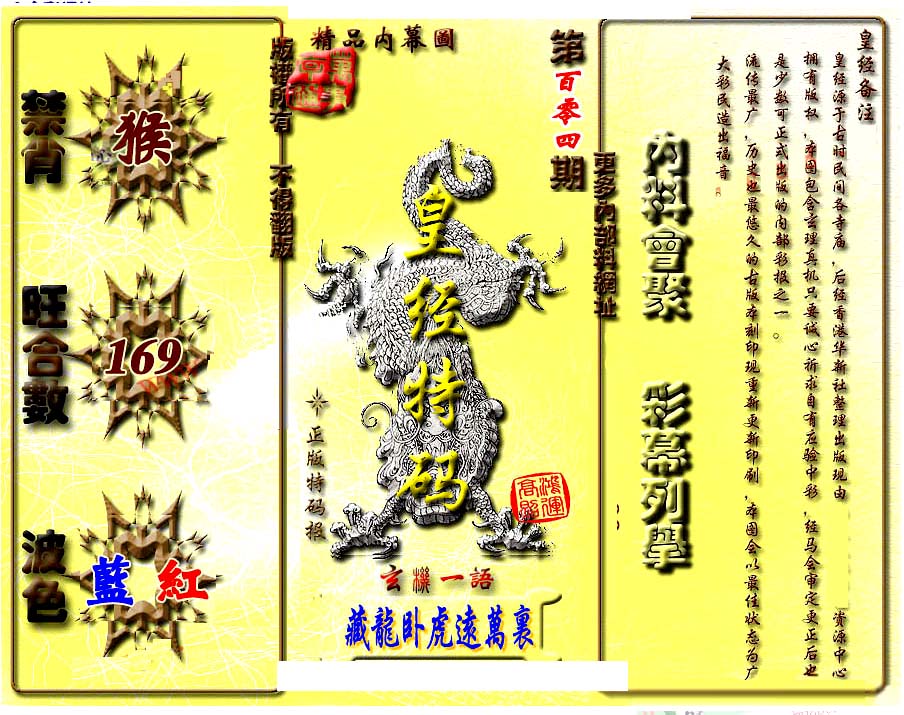 精品內幕圖
第
百零四
期
版權所有 不得翻版
更多內部料網址
禁肖
猴
旺合數
169
波色
藍 紅
皇经特码
正版特码报
鴻運高照
玄機一語
藏龍卧虎遠萬裏
內料會聚
彩幕列舉
皇经备注
皇经源于古时民间各寺庙，后经香港华新社整理出版现由 资源中心
拥有版权，本图包含玄理真机只要诚心祈求自有应验中彩，经马会审定更正后也
是少数可正式出版的内部彩报之一。
流传最广，历史也最悠久的古版本刻印现重新更新印刷，本图会以最佳状态为广
大彩民造出福音